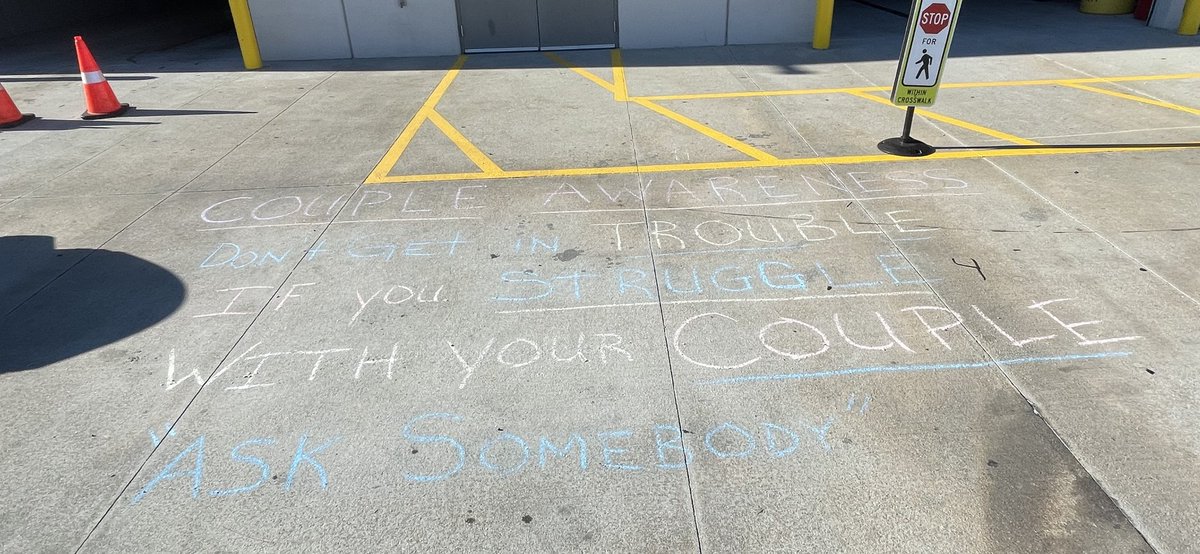 STOP
FOR
WITHIN
CROSSWALK
COUPLE AWARENESS
Don't Get IN TROUBLE
IF you STRUGGLE
WITH your COUPLE
"ASK SOMEBODY"
4